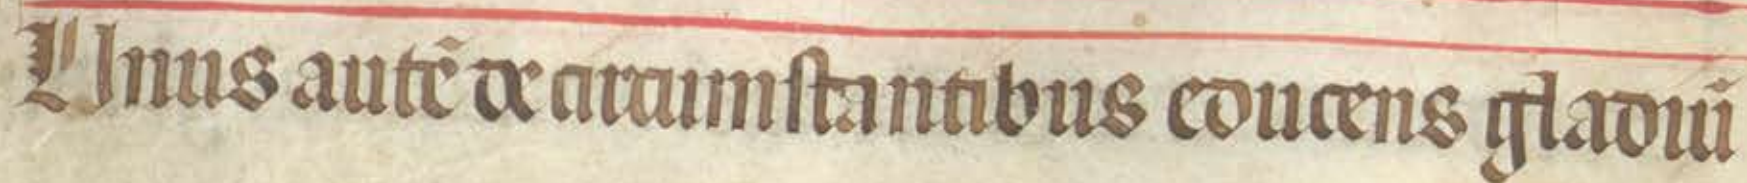 Unus autē de circumstantibus educens gladiū